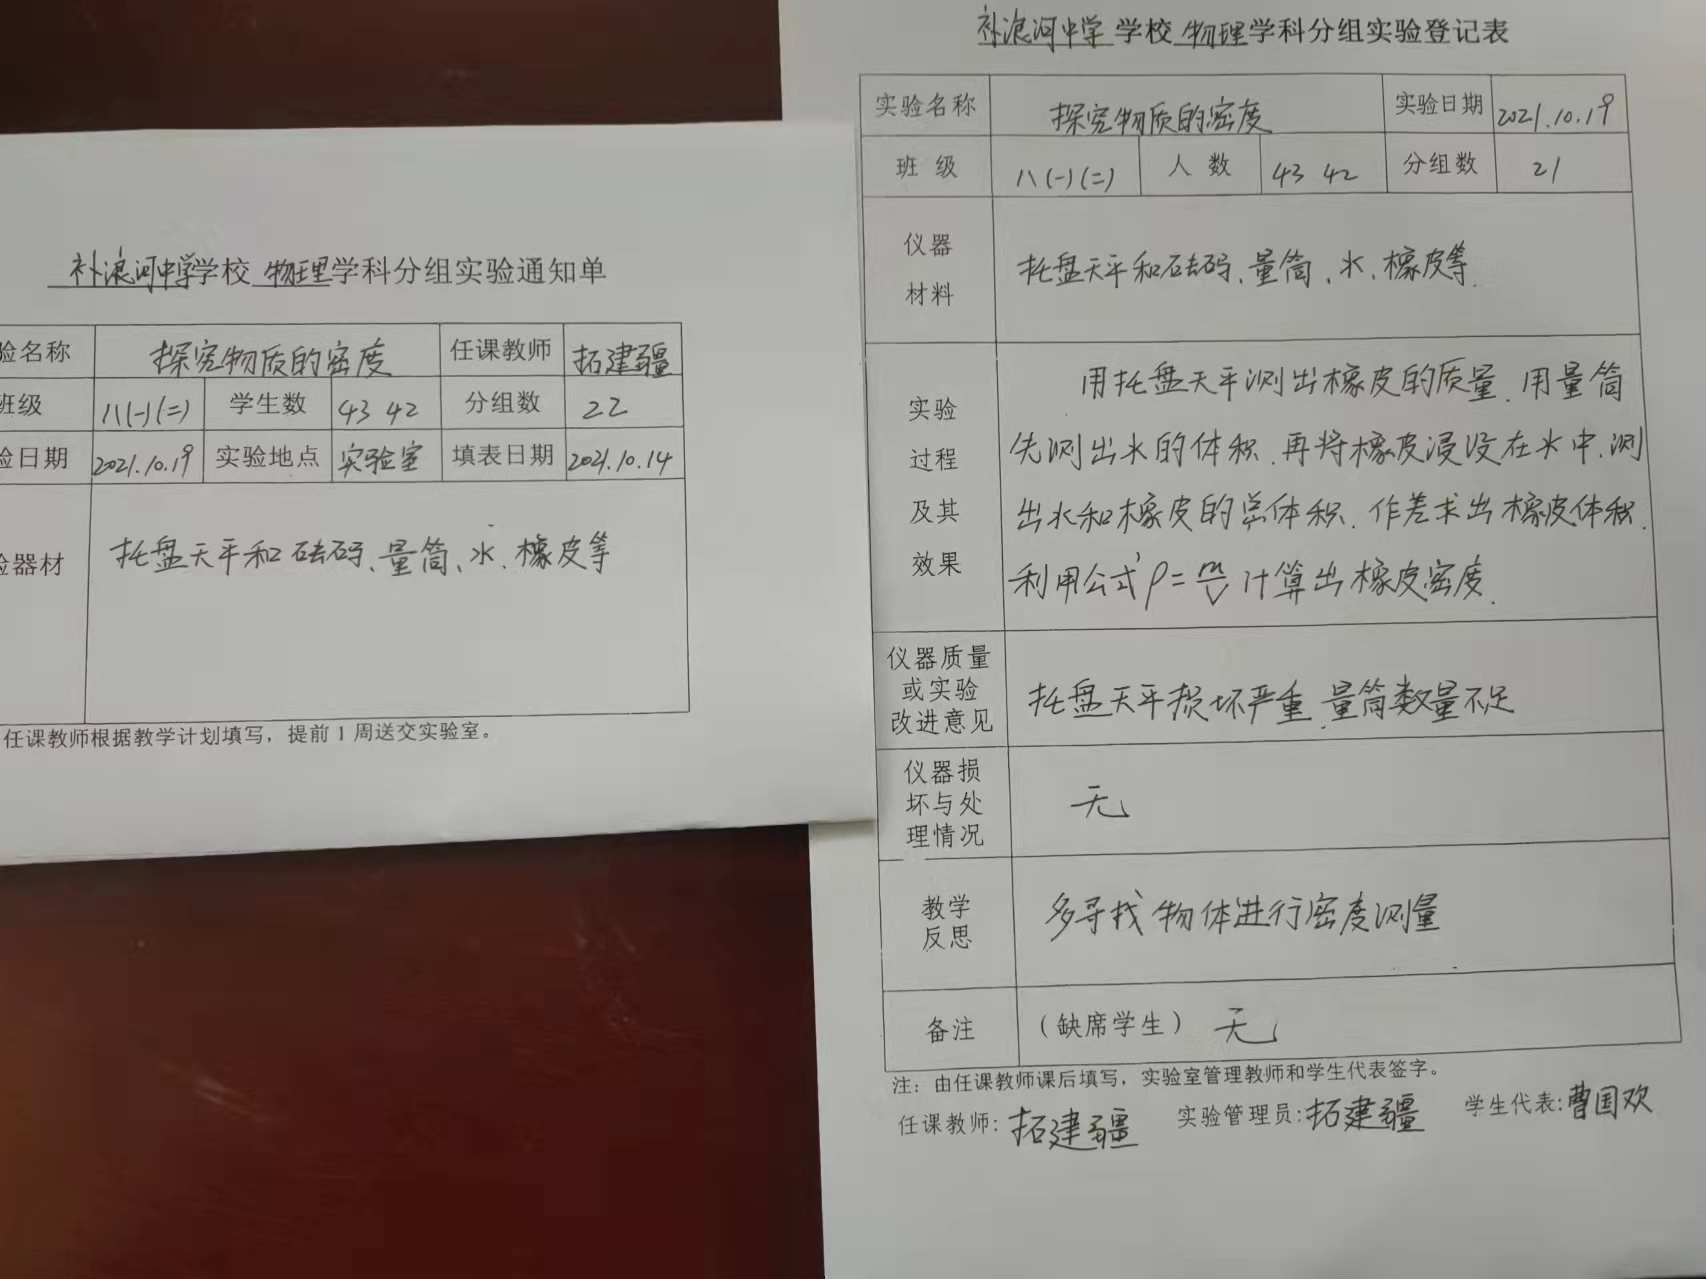 补浪河中学学校 物理学科分组实验通知单
验名称 探究物质的密度 任课教师 拓建疆
班级 八(一)(二) 学生数 43 42 分组数 22
验日期 2021.10.19 实验地点 实验室 填表日期 2021.10.14
验器材 托盘天平和砝码、量筒、水、橡皮等
任课教师根据教学计划填写，提前1周送交实验室。
补浪河中学学校 物理学科分组实验登记表
实验名称 探究物质的密度 实验日期 2021.10.19
班 级 八(一)(二) 人 数 43 42 分组数 21
仪器
材料
托盘天平和砝码、量筒、水、橡皮等.
实验
过程
及其
效果
用托盘天平测出橡皮的质量.用量筒
先测出水的体积.再将橡皮浸没在水中.测
出水和橡皮的总体积.作差求出橡皮体积.
利用公式ρ=m/V计算出橡皮密度.
仪器质量
或实验
改进意见
托盘天平损坏严重 量筒数量不足
仪器损
坏与处
理情况
无
教学
反思
多寻找物体进行密度测量
备注 （缺席学生） 无
注：由任课教师课后填写，实验室管理教师和学生代表签字。
任课教师：拓建疆 实验管理员:拓建疆 学生代表:曹国欢